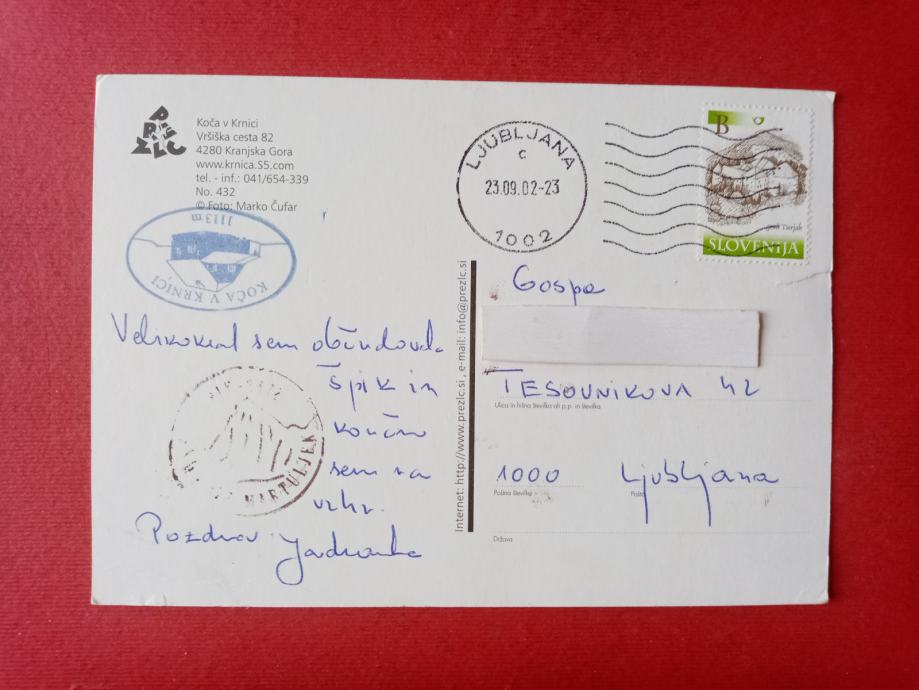 PREZLC
Koča v Krnici
Vršiška cesta 82
4280 Kranjska Gora
www.krnica.S5.com
tel. - inf.: 041/654-339
No. 432
© Foto: Marko Čufar
KOČA V KRNICI
1113 m
LJUBLJANA
c
23.09.02-23
1002
B
grad Turjak
SLOVENIJA
Velikokrat sem občudovala
Špik in
končno
sem na
vrhu.
Pozdrav Jadranka
MARTULJEK
Internet: http://www.prezlc.si , e-mail: info@prezlc.si
Gospa
TESOVNIKOVA 42
Ulica in hišna številka ali p.p. in številka
1000 Ljubljana
Poštna številka Pošta
Država